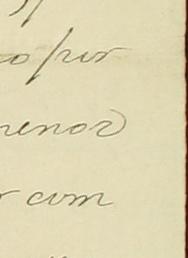 o por
menor
r com